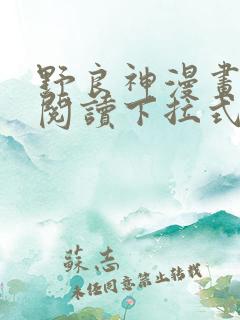 野良神漫畫
閱讀下拉式
蘇志
未經同意禁止轉載